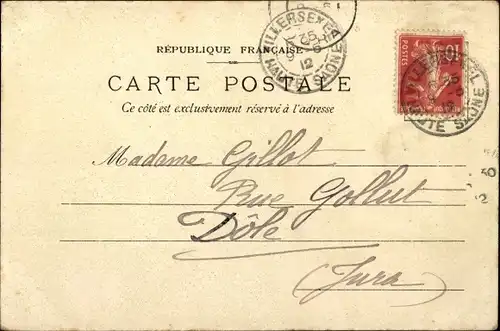 VILLERSEXEL
12
HAUTE SAÔNE
RÉPUBLIQUE FRANÇAISE
CARTE POSTALE
Ce côté est exclusivement réservé à l'adresse
POSTES
10
HAUTE SAÔNE
Madame Gillot
Rue Gollut
Dôle
(Jura)